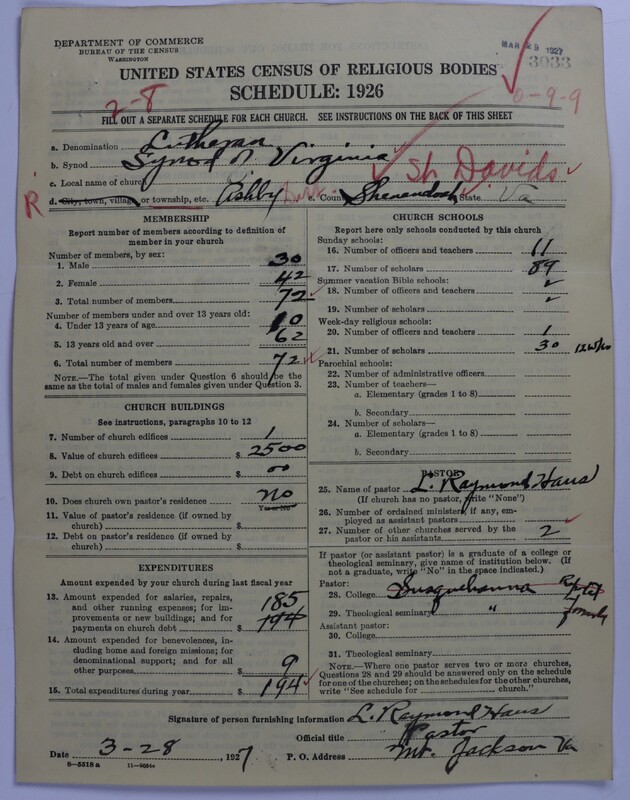 DEPARTMENT OF COMMERCE
BUREAU OF THE CENSUS
WASHINGTON
MAR 29 1927
3033
UNITED STATES CENSUS OF RELIGIOUS BODIES
SCHEDULE: 1926
2-8
0-9-9
FILL OUT A SEPARATE SCHEDULE FOR EACH CHURCH. SEE INSTRUCTIONS ON THE BACK OF THIS SHEET
a. Denomination Lutheran
b. Synod Synod of Virginia
c. Local name of church St. Davids
R
d. City, town, village, or township, etc. Ashby Dist. e. County Shenandoah State Va
MEMBERSHIP
Report number of members according to definition of
member in your church
Number of members, by sex:
1. Male 30
2. Female 42
3. Total number of members 72
Number of members under and over 13 years old:
4. Under 13 years of age 10
5. 13 years old and over 62
6. Total number of members 72
NOTE.—The total given under Question 6 should be the
same as the total of males and females given under Question 3.
CHURCH BUILDINGS
See instructions, paragraphs 10 to 12
7. Number of church edifices 1
8. Value of church edifices $ 2500
9. Debt on church edifices $ 00
10. Does church own pastor's residence no
Yes or No
11. Value of pastor's residence (if owned by
church) $
12. Debt on pastor's residence (if owned by
church) $
EXPENDITURES
Amount expended by your church during last fiscal year
13. Amount expended for salaries, repairs,
and other running expenses; for im-
provements or new buildings; and for
payments on church debt $ 185
194
14. Amount expended for benevolences, in-
cluding home and foreign missions; for
denominational support; and for all
other purposes $ 9
15. Total expenditures during year $ 194
CHURCH SCHOOLS
Report here only schools conducted by this church
Sunday schools:
16. Number of officers and teachers 11
17. Number of scholars 89
Summer vacation Bible schools:
18. Number of officers and teachers
19. Number of scholars
Week-day religious schools:
20. Number of officers and teachers 1
21. Number of scholars 30
Parochial schools:
22. Number of administrative officers
23. Number of teachers—
a. Elementary (grades 1 to 8)
b. Secondary
24. Number of scholars—
a. Elementary (grades 1 to 8)
b. Secondary
PASTOR
25. Name of pastor L. Raymond Haus
(If church has no pastor, write "None")
26. Number of ordained ministers, if any, em-
ployed as assistant pastors
27. Number of other churches served by the
pastor or his assistants 2
If pastor (or assistant pastor) is a graduate of a college or
theological seminary, give name of institution below. (If
not a graduate, write "No" in the space indicated.)
Pastor:
28. College Susquehanna
29. Theological seminary "
Assistant pastor:
30. College
31. Theological seminary
NOTE.—Where one pastor serves two or more churches,
Questions 28 and 29 should be answered only on the schedule
for one of the churches; on the schedules for the other churches,
write "See schedule for church."
Signature of person furnishing information L. Raymond Haus
Official title Pastor
Date 3-28, 1927 P. O. Address Mt. Jackson Va
8-5518 a